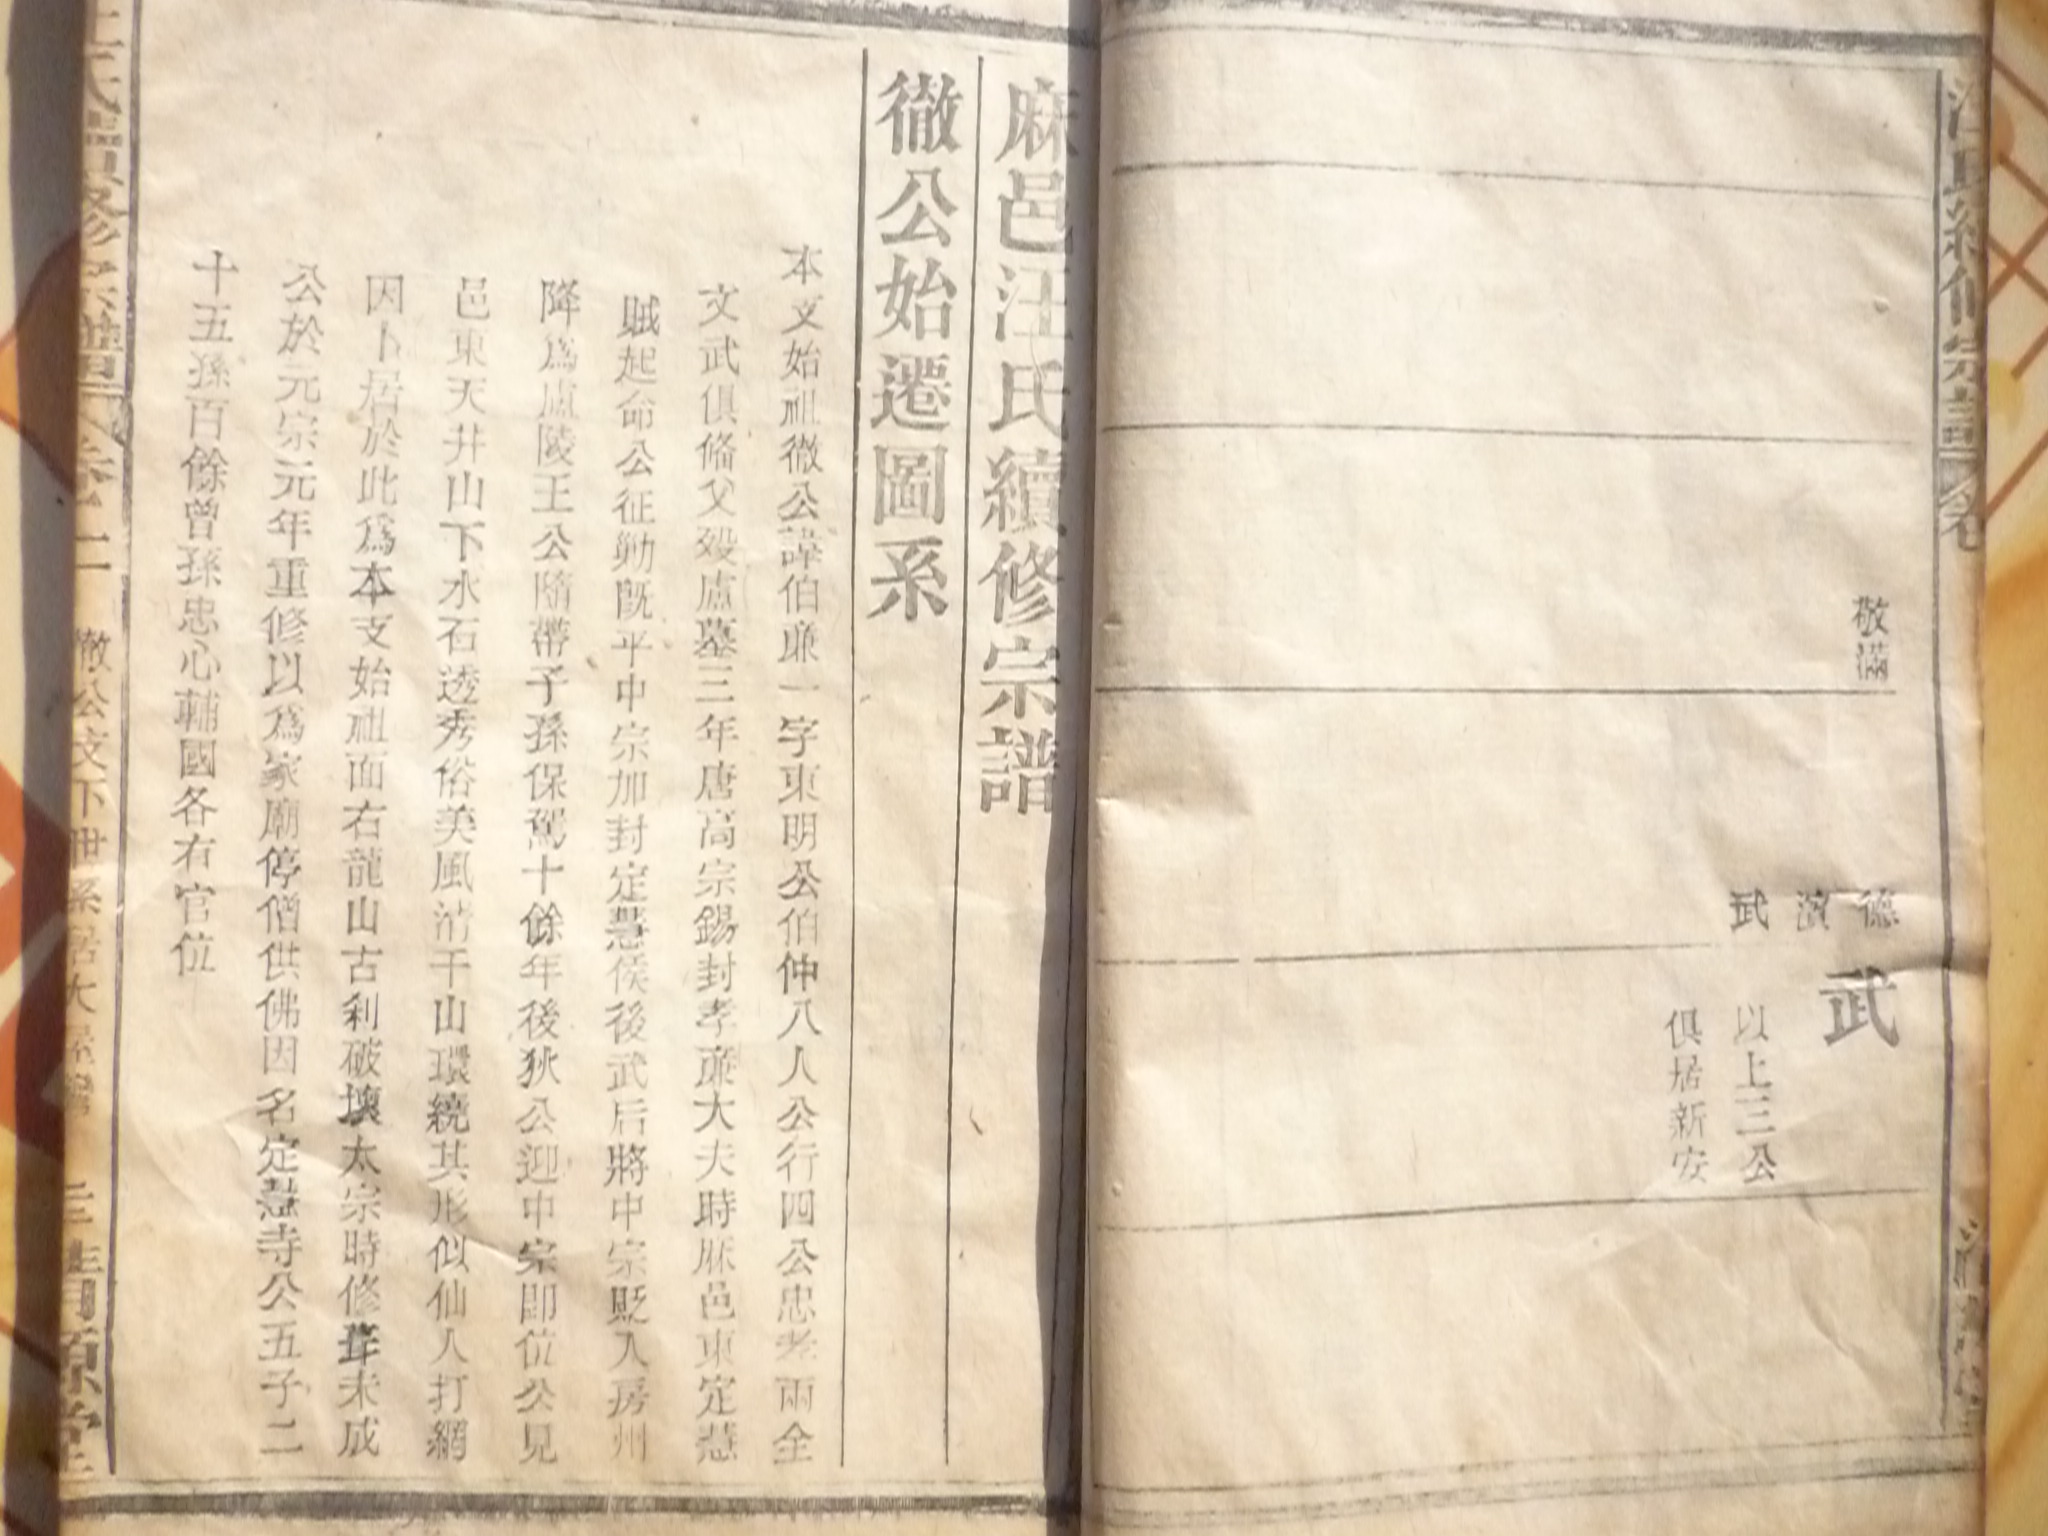 敬滿
德
濱
武
武
以上三公
俱居新安
麻邑汪氏續修宗譜
徹公始遷圖系
本支始祖徹公諱伯廉一字東明公伯仲八人公行四公忠孝兩全
文武俱俻父歿廬墓三年唐高宗錫封孝廉大夫時麻邑東定慧
賊起命公征勦既平中宗加封定慧侯後武后將中宗貶入房州
降爲廬陵王公隨帶子孫保駕十餘年後狄公迎中宗卽位公見
邑東天井山下水石透秀俗美風淸干山環繞其形似仙人打網
因卜居於此爲本支始祖面右龍山古刹破壞太宗時修葺未成
公於元宗元年重修以爲家廟停僧供佛因名定慧寺公五子二
十五孫百餘曾孫忠心輔國各右官位
徹公文下世系居大